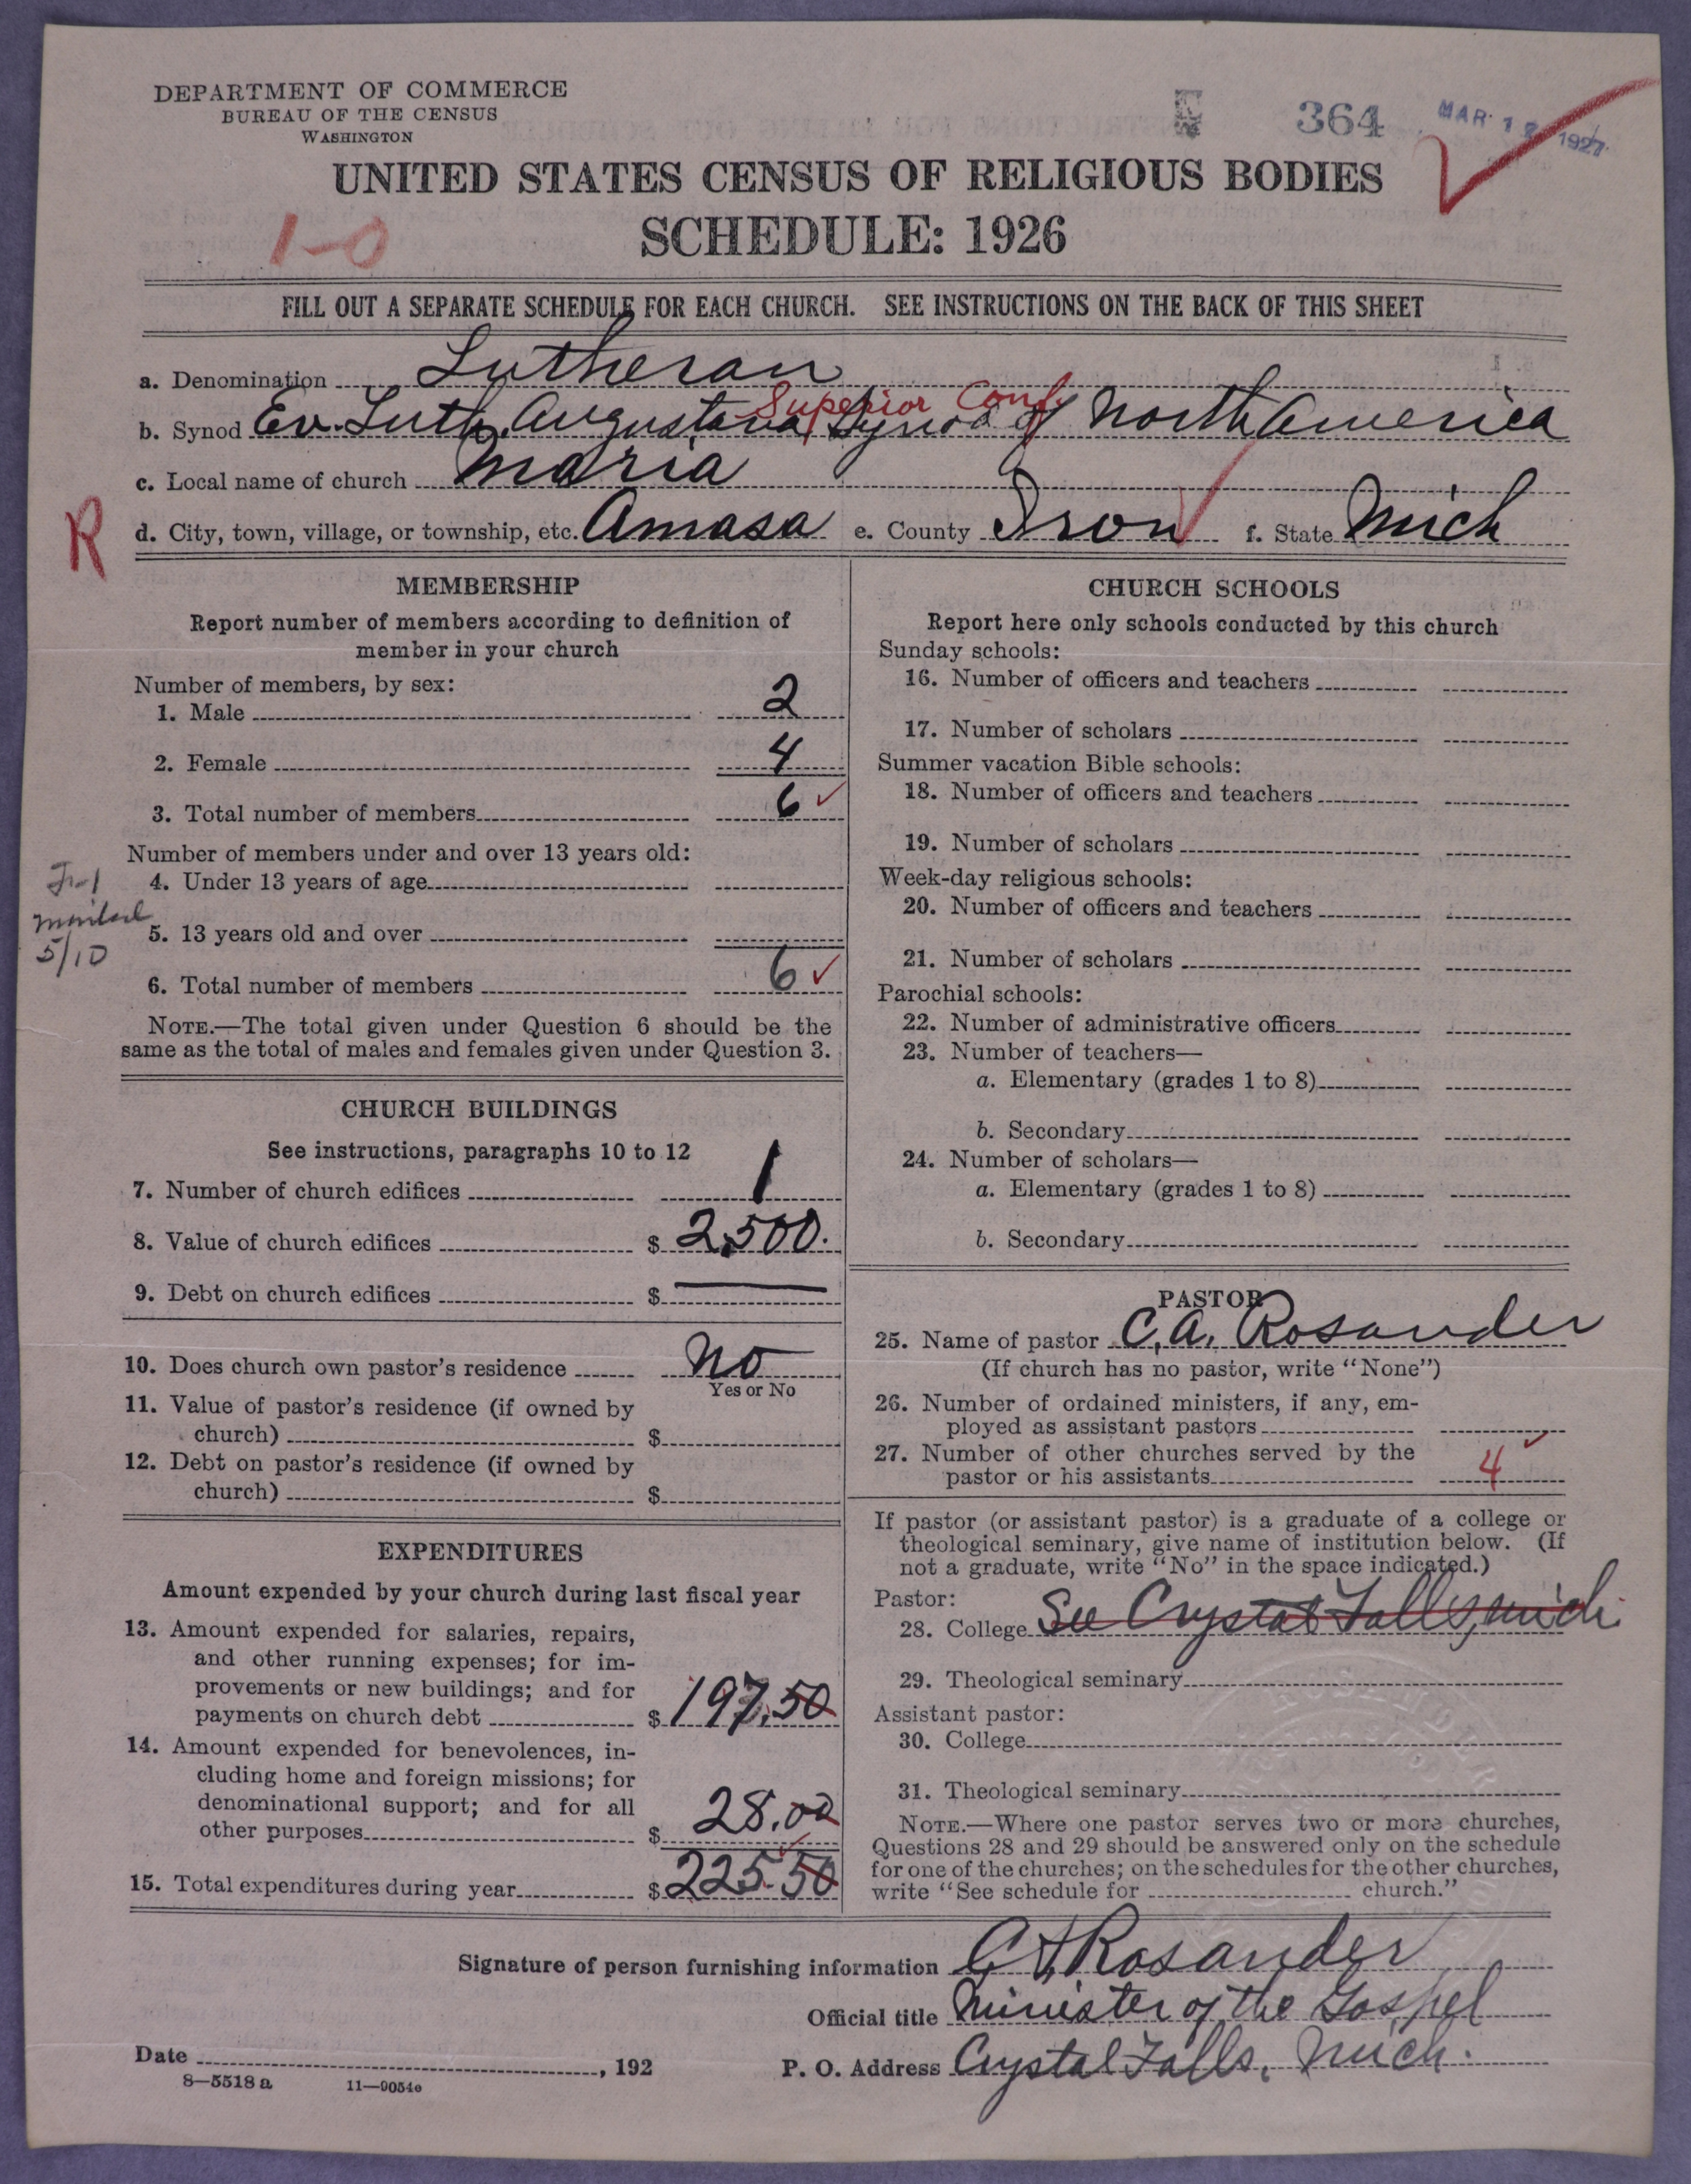 DEPARTMENT OF COMMERCE
BUREAU OF THE CENSUS
WASHINGTON
364
MAR 12 1927
UNITED STATES CENSUS OF RELIGIOUS BODIES
1-0
SCHEDULE: 1926
FILL OUT A SEPARATE SCHEDULE FOR EACH CHURCH. SEE INSTRUCTIONS ON THE BACK OF THIS SHEET
a. Denomination Lutheran
Superior Conf.
b. Synod Ev. Luth. Augustana Synod of North America
c. Local name of church Maria
R
d. City, town, village, or township, etc. Amasa e. County Iron f. State Mich
MEMBERSHIP
Report number of members according to definition of
member in your church
Number of members, by sex:
1. Male 2
2. Female 4
3. Total number of members 6
Number of members under and over 13 years old:
4. Under 13 years of age
5. 13 years old and over
5/10
6. Total number of members 6
NOTE.—The total given under Question 6 should be the
same as the total of males and females given under Question 3.
CHURCH BUILDINGS
See instructions, paragraphs 10 to 12
7. Number of church edifices 1
8. Value of church edifices $ 2,500.
9. Debt on church edifices $ —
10. Does church own pastor's residence No
Yes or No
11. Value of pastor's residence (if owned by
church) $
12. Debt on pastor's residence (if owned by
church) $
EXPENDITURES
Amount expended by your church during last fiscal year
13. Amount expended for salaries, repairs,
and other running expenses; for im-
provements or new buildings; and for
payments on church debt $ 197.50
14. Amount expended for benevolences, in-
cluding home and foreign missions; for
denominational support; and for all
other purposes $ 28.00
15. Total expenditures during year $ 225.50
CHURCH SCHOOLS
Report here only schools conducted by this church
Sunday schools:
16. Number of officers and teachers
17. Number of scholars
Summer vacation Bible schools:
18. Number of officers and teachers
19. Number of scholars
Week-day religious schools:
20. Number of officers and teachers
21. Number of scholars
Parochial schools:
22. Number of administrative officers
23. Number of teachers—
a. Elementary (grades 1 to 8)
b. Secondary
24. Number of scholars—
a. Elementary (grades 1 to 8)
b. Secondary
PASTOR
25. Name of pastor C. A. Rosander
(If church has no pastor, write "None")
26. Number of ordained ministers, if any, em-
ployed as assistant pastors
27. Number of other churches served by the
pastor or his assistants 4
If pastor (or assistant pastor) is a graduate of a college or
theological seminary, give name of institution below. (If
not a graduate, write "No" in the space indicated.)
Pastor:
28. College See Crystal Falls, Mich.
29. Theological seminary
Assistant pastor:
30. College
31. Theological seminary
NOTE.—Where one pastor serves two or more churches,
Questions 28 and 29 should be answered only on the schedule
for one of the churches; on the schedules for the other churches,
write "See schedule for church."
Signature of person furnishing information C A Rosander
Official title Minister of the Gospel
Date , 192 P. O. Address Crystal Falls, Mich.
8—5518 a 11—9054c